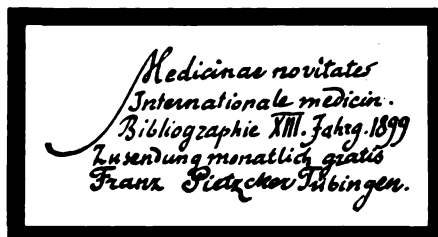 Medicinae novitates
Internationale medicin.
Bibliographie XIII. Jahrg. 1899
Zusendung monatlich gratis
Franz Pietzcker Tübingen.